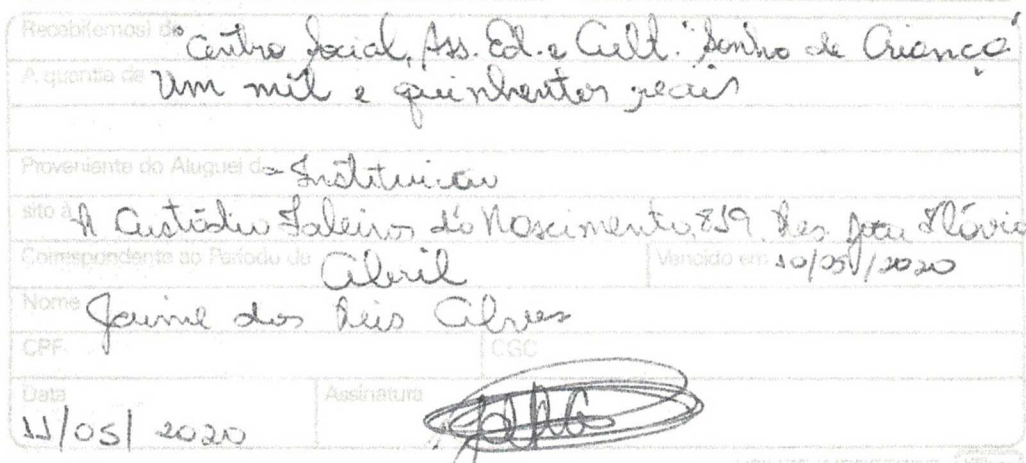 Recebi(emos) de Centro Social, Ass. Ed. e Cult. "Sonho de Criança"
A quantia de Um mil e quinhentos reais
Proveniente do Aluguel da Instituição
sito à R Custódio Faleiros do Nascimento, 859 Res. João Flávio
Correspondente ao Período de Abril Vencido em 10/05/2020
Nome Jaime dos Reis Alves
CPF CGC
Data Assinatura
11/05/2020